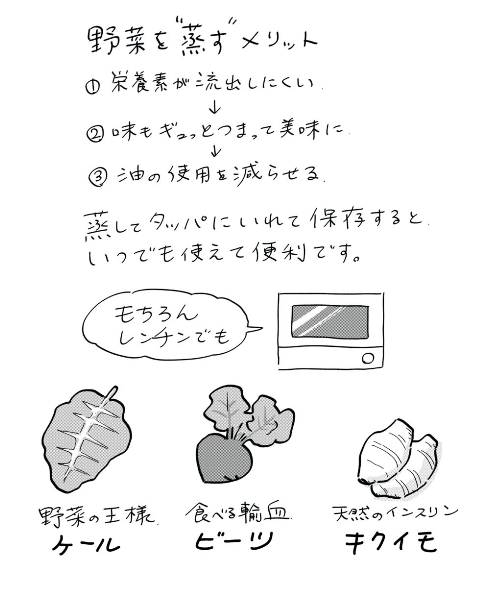 野菜を"蒸す"メリット
① 栄養素が流出しにくい.
↓
② 味もギュッとつまって美味に.
↓
③ 油の使用を減らせる.
蒸してタッパにいれて保存すると.
いつでも使えて便利です。
もちろん
レンチンでも
野菜の王様.
ケール
食べる輸血.
ビーツ
天然のインスリン
キクイモ